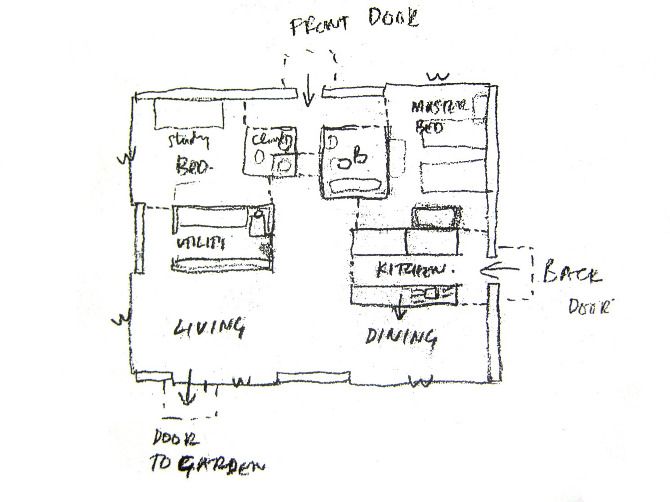 FRONT DOOR
W
MASTER
BED
Study
BED.
B
W
UTILITY
KITCHEN.
BACK
DOOR
W
LIVING
DINING
W
W
DOOR
TO GARDEN